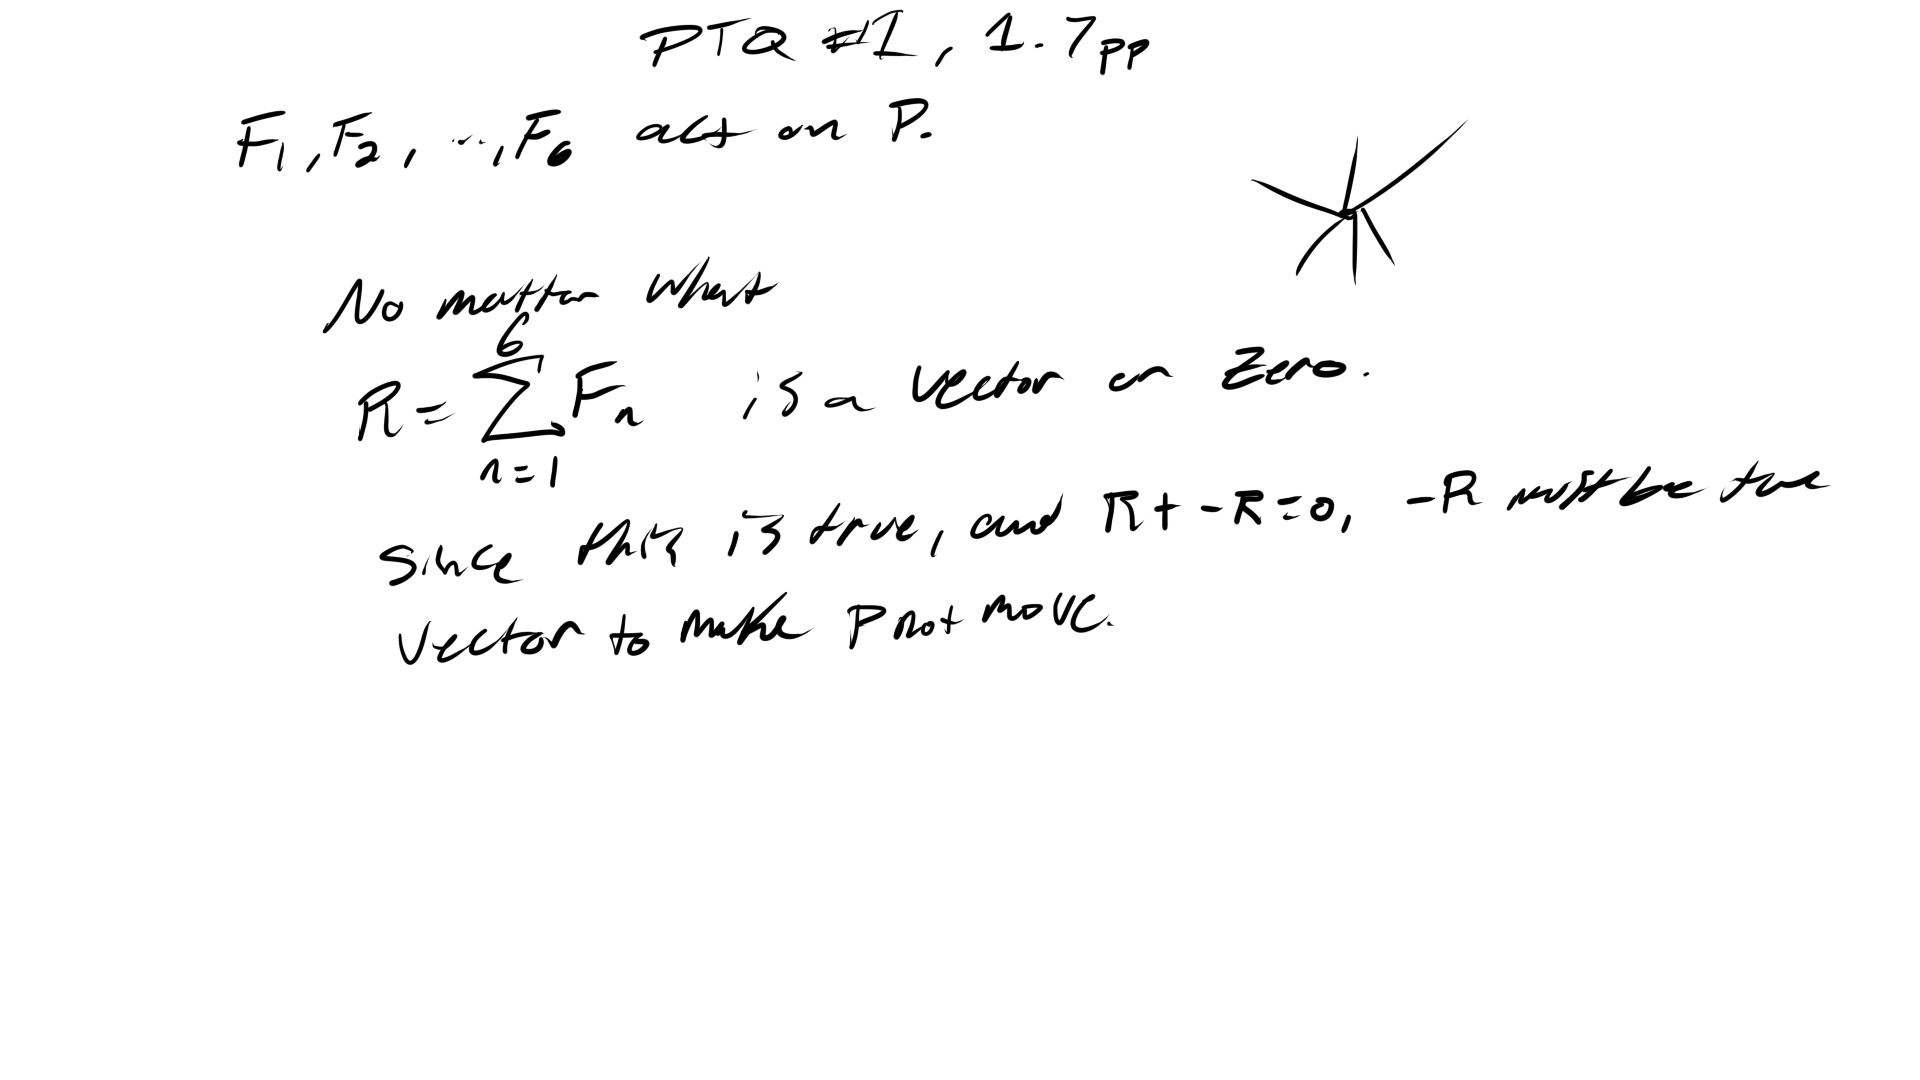 PTQ #1, 1.7pp
F₁, F₂, ..., F₆ act on P.
No matter what
R = ∑_{n=1}^{6} Fₙ is a vector or zero.
Since this is true, and R + -R = 0, -R must be the
vector to make P not move.